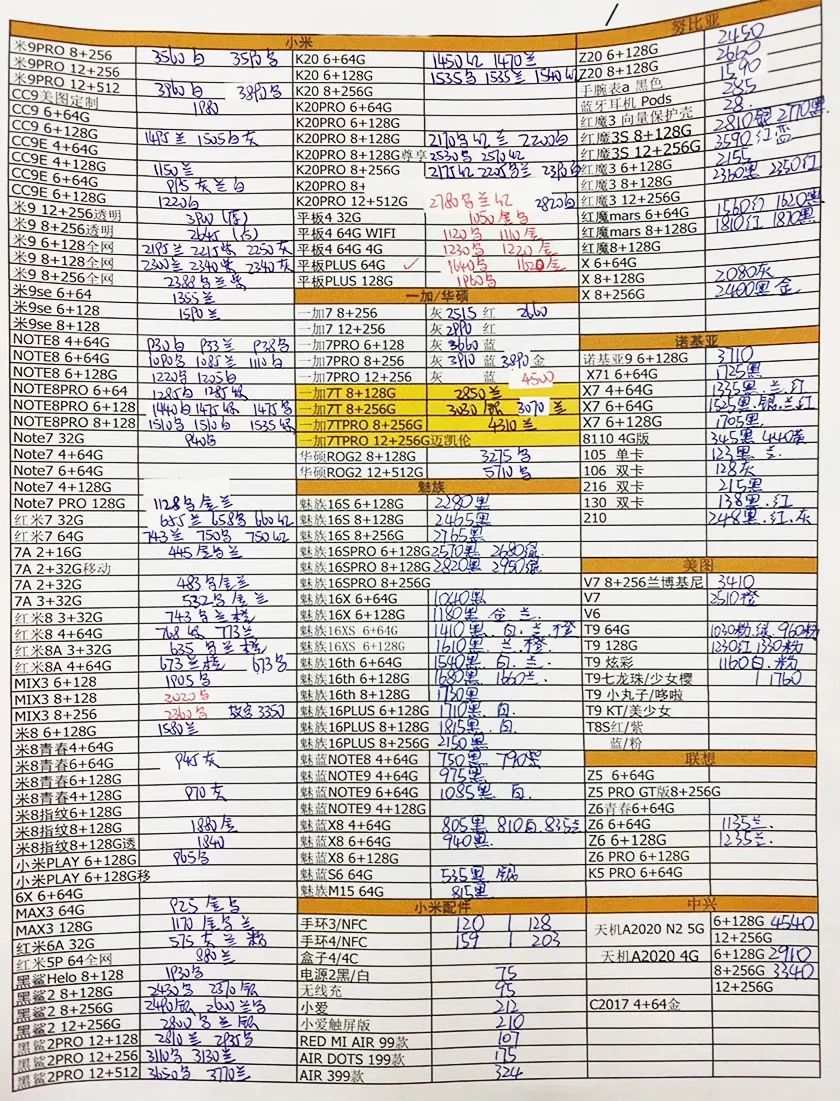 小米
米9PRO 8+256 3560白 3590乌
米9PRO 12+256
米9PRO 12+512 3960白 3890乌
CC9美图定制 1980
CC9 6+64G
CC9 6+128G 1495兰 1505白灰
CC9E 4+64G
CC9E 4+128G 1150兰
CC9E 6+64G 995灰兰白
CC9E 6+128G 1220白
米9 12+256透明
米9 8+256透明
米9 6+128全网 2195兰 2215紫 2250灰
米9 8+128全网 2300兰 2340紫 2340灰
米9 8+256全网 2388兰紫
米9se 6+64 1355兰
米9se 6+128 1590兰
米9se 8+128
NOTE8 4+64G 930白 933兰 938乌
NOTE8 6+64G 1090乌 1085兰 1110白
NOTE8 6+128G 1220乌 1205白
NOTE8PRO 6+64 1285白 1285绿
NOTE8PRO 6+128 1440白 1475绿 1475乌
NOTE8PRO 8+128 1510乌 1510白 1535绿
Note7 32G 940乌
Note7 4+64G
Note7 6+64G
Note7 4+128G
Note7 PRO 128G 1128乌金兰
红米7 32G 655兰 658乌 660红
红米7 64G 743兰 750乌 750红
7A 2+16G 445金乌兰
7A 2+32G移动
7A 2+32G 483乌金兰
7A 3+32G 532乌兰
红米8 3+32G 743乌兰橙
红米8 4+64G 768绿 773兰
红米8A 3+32G 635乌兰橙
红米8A 4+64G 673兰橙 673乌
MIX3 6+128 1905乌
MIX3 8+128 2020乌
MIX3 8+256 2360乌 故宫3350
米8 6+128G 1580兰
米8青春4+64G
米8青春6+64G 945灰
米8青春6+128G
米8青春4+128G 970灰
米8指纹6+128G
米8指纹8+128G 1880金
米8指纹8+128G透 1840
小米PLAY 6+128G 965乌
小米PLAY 6+128G移
6X 6+64G
MAX3 64G 925金乌
MAX3 128G 1170金乌
红米6A 32G 575灰兰粉
红米5P 64全网 880兰
黑鲨Helo 8+128 1930乌
黑鲨2 8+128G 2430乌 2370银
黑鲨2 8+256G 2490银 2600兰乌
黑鲨2 12+256G 2800乌兰银
黑鲨2PRO 12+128 2810兰 2835乌
黑鲨2PRO 12+256 3110乌 3130兰
黑鲨2PRO 12+512 3650乌 3770兰
K20 6+64G 1450红 1470兰
K20 6+128G 1535乌 1535兰 1540红
K20 8+256G
K20PRO 6+64G
K20PRO 6+128G
K20PRO 8+128G 2170乌红兰 2200白
K20PRO 8+128G尊享 2530乌 2570红
K20PRO 8+256G 2175红 2205乌兰 2390白
K20PRO 8+
K20PRO 12+512G 2780乌兰红 2820白
平板4 32G 1050金乌
平板4 64G WIFI 1120乌 1110金
平板4 64G 4G 1230乌 1220金
平板PLUS 64G 1640乌 1620金
平板PLUS 128G 1960乌
一加/华硕
一加7 8+256 灰 2515 红 2660
一加7 12+256 灰 2990 红
一加7PRO 6+128 灰 3660 蓝
一加7PRO 8+256 灰 3910 蓝 3890 金
一加7PRO 12+256 灰 蓝 4500
一加7T 8+128G 2850兰
一加7T 8+256G 3030银 3070兰
一加7TPRO 8+256G 4310兰
一加7TPRO 12+256G迈凯伦
华硕ROG2 8+128G 3275乌
华硕ROG2 12+512G 5710乌
魅族
魅族16S 6+128G 2280黑
魅族16S 8+128G 2465黑
魅族16S 8+256G 2765黑
魅族16SPRO 6+128G 2570黑 2680绿.
魅族16SPRO 8+128G 2820黑 2950绿
魅族16SPRO 8+256G
魅族16X 6+64G 1040黑
魅族16X 6+128G 1180黑 金 兰.
魅族16XS 6+64G 1410黑.白.兰.橙
魅族16XS 6+128G 1610黑.兰.橙
魅族16th 6+64G 1540黑.白.兰.
魅族16th 6+128G 1680黑 1660兰.
魅族16th 8+128G 1730黑
魅族16PLUS 6+128G 1710黑.白.
魅族16PLUS 8+128G 1815黑.白.
魅族16PLUS 8+256G 2150黑
魅蓝NOTE8 4+64G 750黑 790紫
魅蓝NOTE9 4+64G 975黑
魅蓝NOTE9 6+64G 1085黑 白.
魅蓝NOTE9 4+128G
魅蓝X8 4+64G 805黑 810白.835兰
魅蓝X8 6+64G 940黑.
魅蓝X8 6+128G
魅蓝S6 64G 535黑 银
魅族M15 64G 815黑
小米配件
手环3/NFC 120 | 128
手环4/NFC 159 | 203
盒子4/4C
电源2黑/白 75
无线充 95
小爱 212
小爱触屏版 210
RED MI AIR 99款 107
AIR DOTS 199款 175
AIR 399款 324
努比亚
Z20 6+128G 2450
Z20 8+128G 2660
手腕表a 黑色 1590
蓝牙耳机 Pods 285
红魔3 向量保护壳 28.
红魔3S 8+128G 2810银 2770黑
红魔3S 12+256G 3590红蓝
红魔3 6+128G 2155
红魔3 8+128G 2360黑 2350红
红魔3 12+256G
红魔mars 6+64G 1560红 1620黑
红魔mars 8+128G 1810红 1870黑
红魔8+128G
X 6+64G
X 8+128G 2080灰
X 8+256G 2400黑 金
诺基亚
诺基亚9 6+128G 3710
X71 6+64G 1725黑
X7 4+64G 1335黑.兰.红
X7 6+64G 1525黑.银.兰.红
X7 6+128G 1705黑.
8110 4G版 345黑 440黄
105 单卡 123黑 兰.
106 双卡 128灰
216 双卡 215黑
130 双卡 138黑.红
210 248黑.红.灰
美图
V7 8+256兰博基尼 3410
V7 2510橙
V6
T9 64G 1030粉.绿 960粉
T9 128G 1230红 1330粉
T9 炫彩 1160白.粉
T9七龙珠/少女樱 | 1760
T9 小丸子/哆啦
T9 KT/美少女
T8S红/紫
蓝/粉
联想
Z5 6+64G
Z5 PRO GT版8+256G
Z6青春6+64G
Z6 6+64G 1135兰.
Z6 6+128G 1235兰.
Z6 PRO 6+128G
K5 PRO 6+64G
中兴
天机A2020 N2 5G 6+128G 4540
12+256G
天机A2020 4G 6+128G 2910
8+256G 3340
12+256G
C2017 4+64金